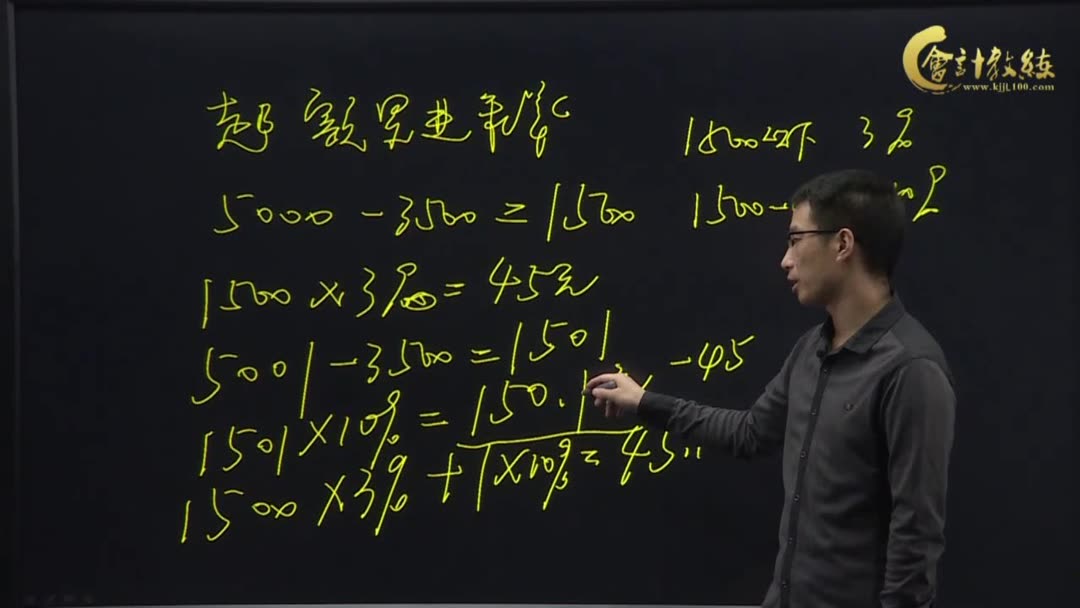 會計教練
www.kjjl100.com
超额累进税率
1500以下 3%
5000-3500=1500
1500-
1500×3%=45元
5001-3500=1501
-45
1501×10%=150.1
1500×3%+1×10%=45.1